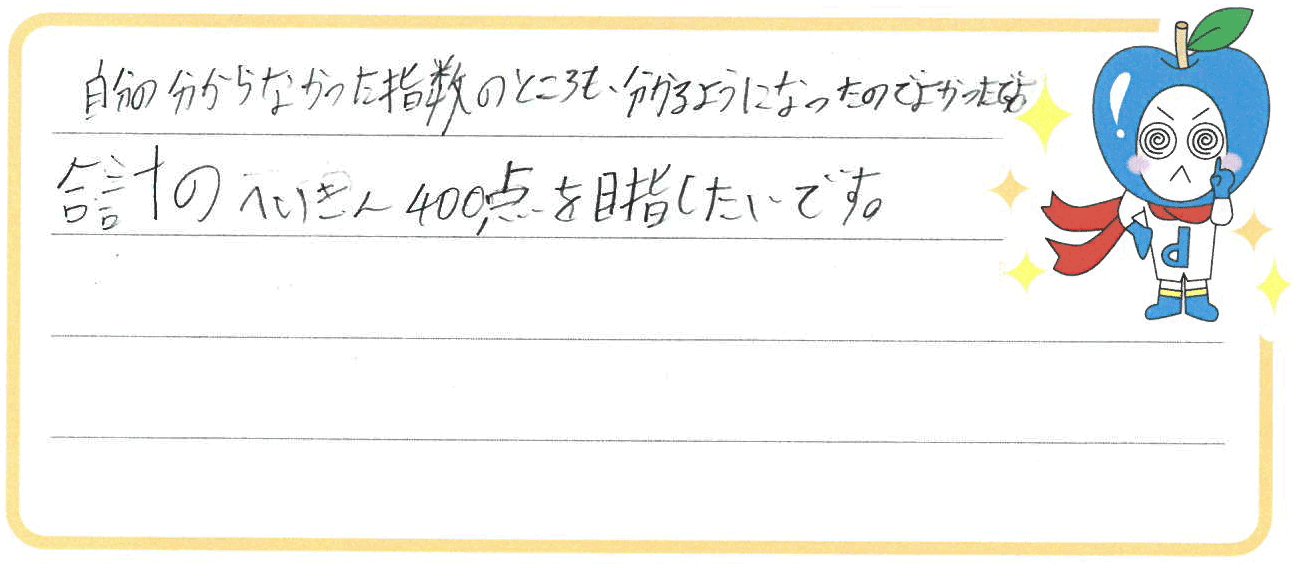 自分の分からなかった指数のところも、分かるようになったのでよかったです。
合計のへいきん400点を目指したいです。
d